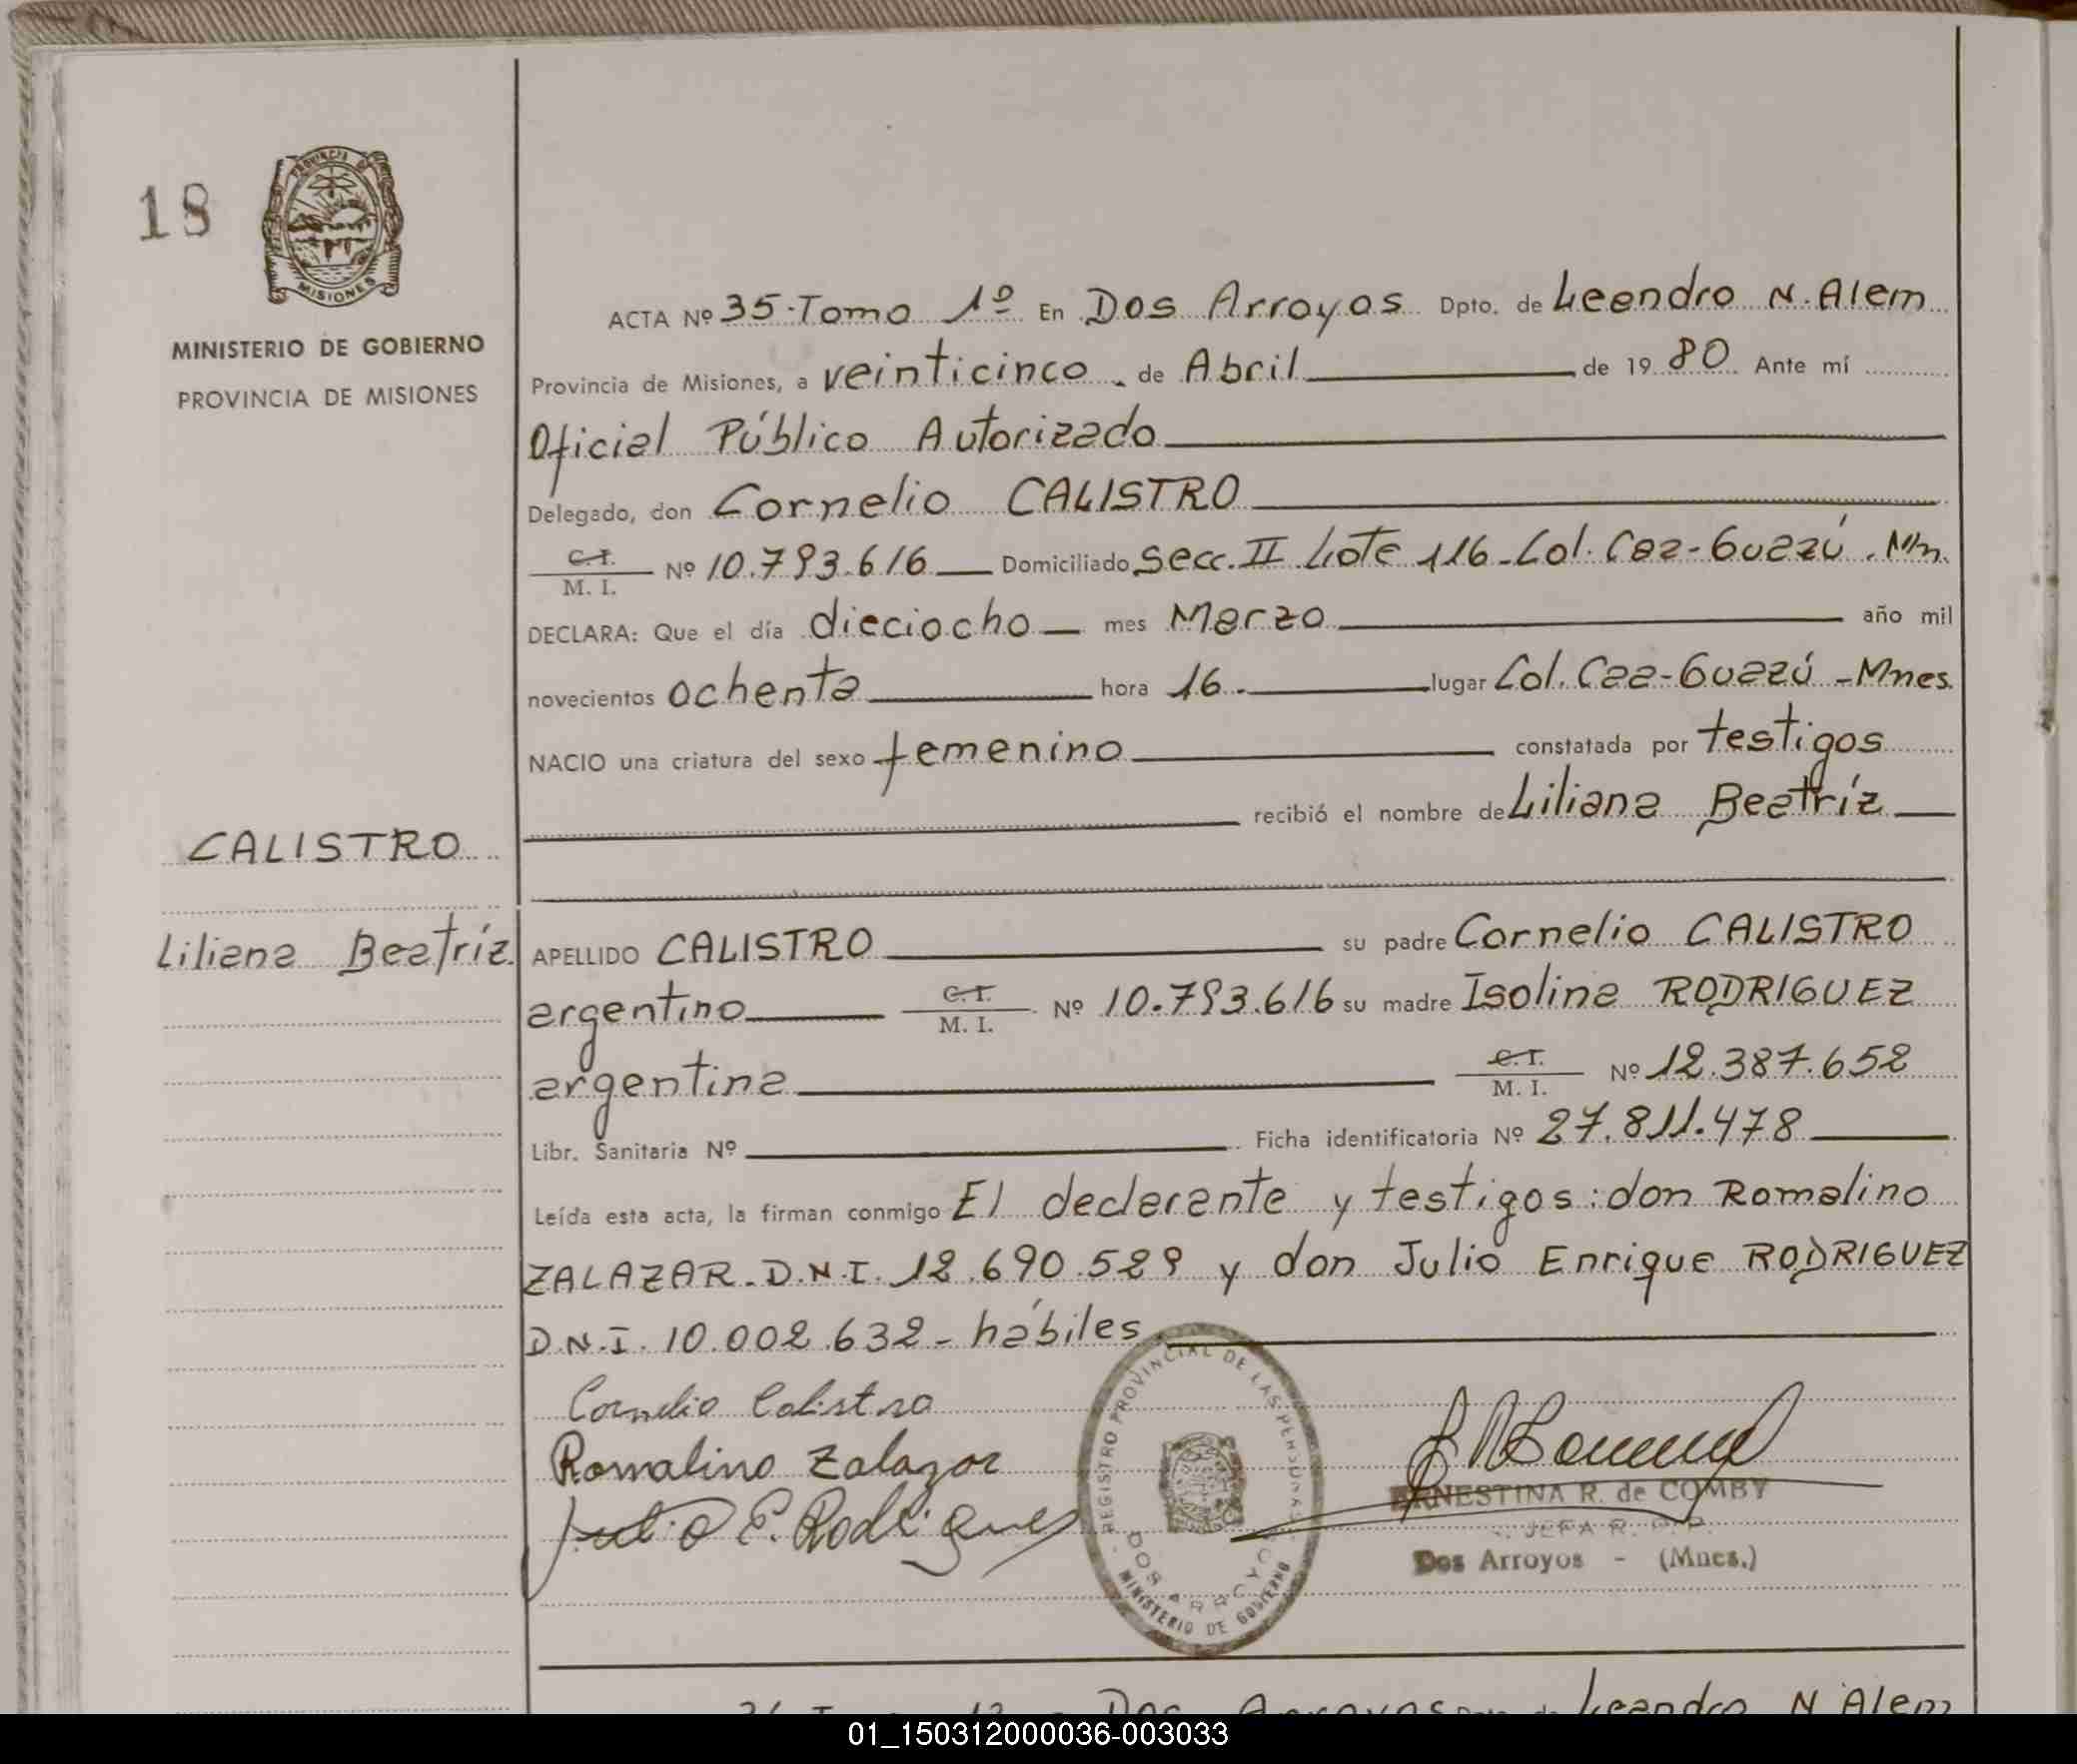 18
PROVINCIA DE
MISIONES
MINISTERIO DE GOBIERNO
PROVINCIA DE MISIONES
ACTA Nº 35-Tomo 1º En Dos Arroyos Dpto. de Leandro N. Alem
Provincia de Misiones, a veinticinco de Abril de 1980 Ante mí
Oficial Público Autorizado
Delegado, don Cornelio CALISTRO
C.I.
M. I. Nº 10.793.616 Domiciliado Secc. II Lote 116-Col. Caa-Guazú. Mn.
DECLARA: Que el día dieciocho mes Marzo año mil
novecientos ochenta hora 16.- lugar Col. Caa-Guazú-Mnes.
NACIO una criatura del sexo femenino constatada por testigos
recibió el nombre de Liliana Beatríz
CALISTRO
Liliana Beatríz.
APELLIDO CALISTRO su padre Cornelio CALISTRO
argentino C.I. M. I. Nº 10.793.616 su madre Isolina RODRIGUEZ
argentina C.I. M. I. Nº 12.387.652
Libr. Sanitaria Nº Ficha identificatoria Nº 27.811.478
Leída esta acta, la firman conmigo El declarante y testigos: don Romalino
ZALAZAR-D.N.I. 12.690.529 y don Julio Enrique RODRIGUEZ
D.N.I. 10.002.632-hábiles
Cornelio Calistro
Romalino Zalazar
Julio E. Rodrigues
REGISTRO PROVINCIAL DE LAS PERSONAS
DOS ARROYOS
MINISTERIO DE GOBIERNO
ERNESTINA R. de COMBY
JEFA R. P. P.
Dos Arroyos - (Mnes.)
Dos Arroyos Leandro N. Alem
01_150312000036-003033